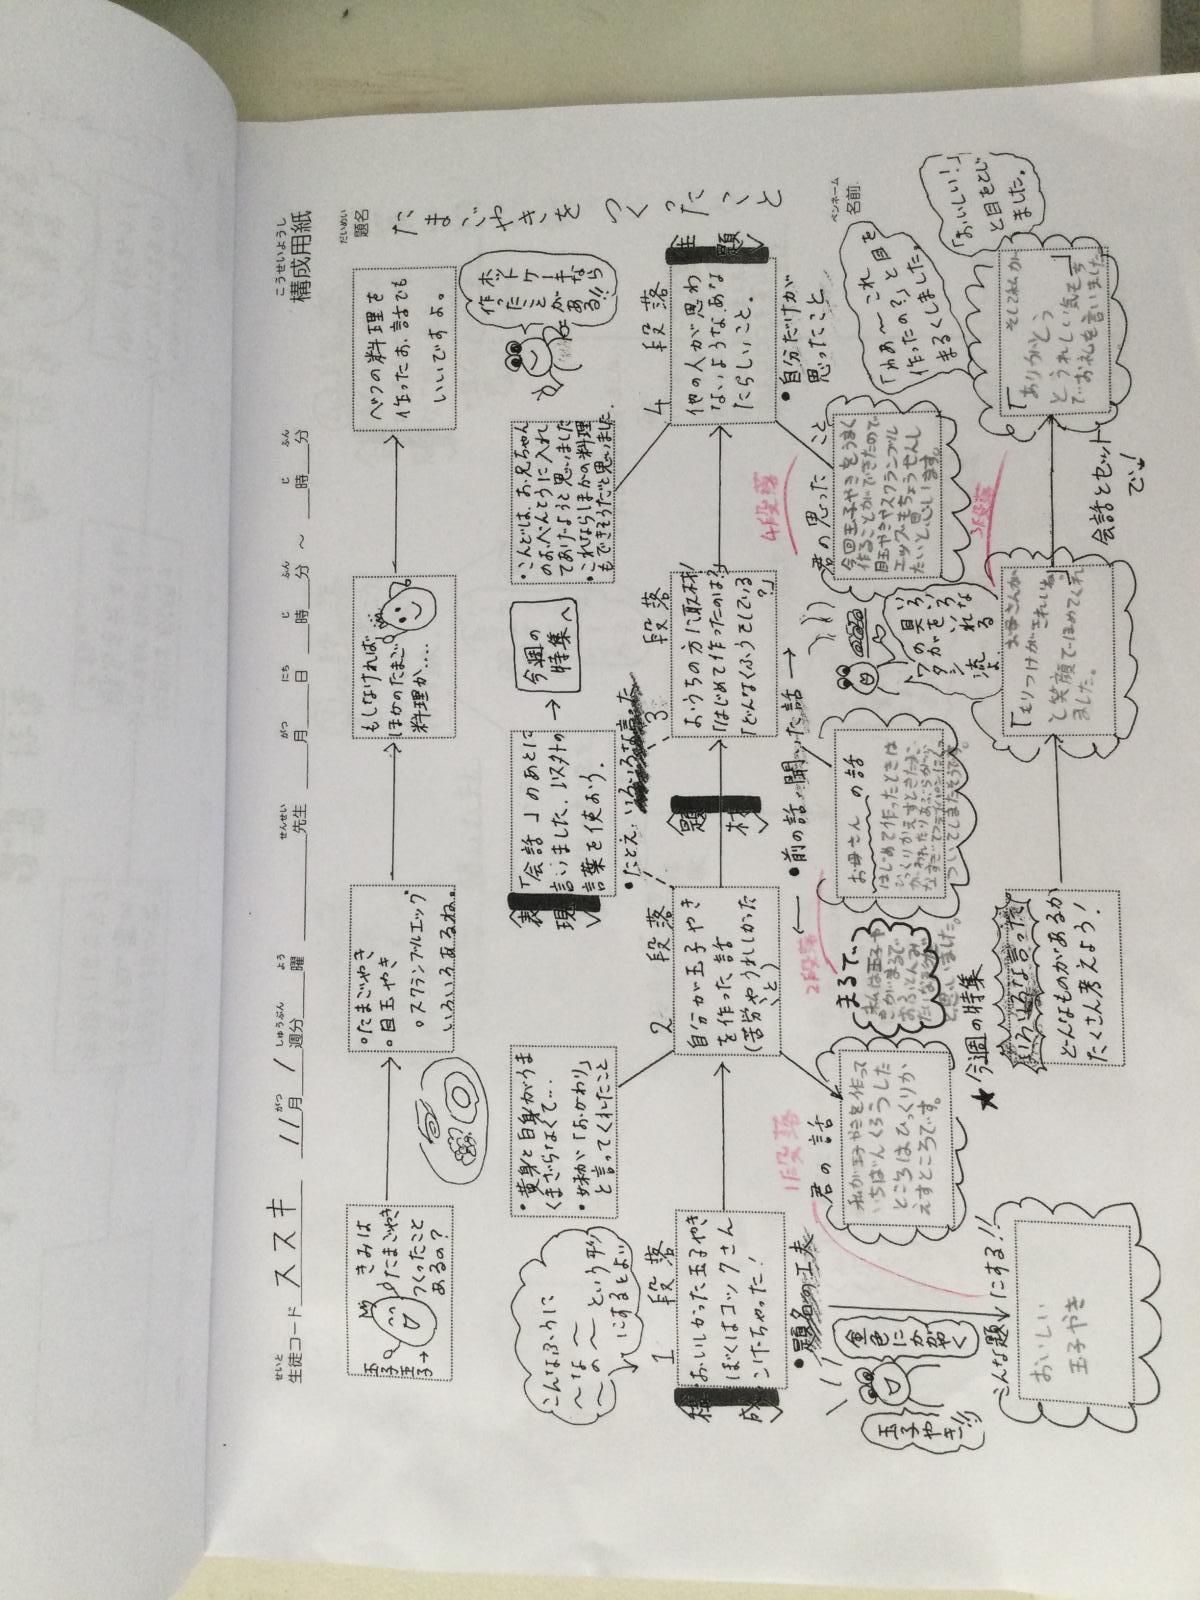 こうせいようし
構成用紙
せいと
生徒コード ススキ 11月 1週分 曜 先生 月 日 時 分 ～ 時 分
がつ しゅうぶん よう せんせい がつ にち じ ふん じ ふん
だいめい
題名
たまごやきを
つくったこと
ペンネーム
名前
玉子玉子→
きみは
たまごやき
つくったこと
あるの？
・たまごやき
・目玉やき
・スクランブルエッグ
いろいろあるね。
もしなければ
ほかのたまご
料理か‥‥
べつの料理を
作ったお話でも
いいですよ。
ホットケーキなら
作ったことが
ある!!
こんなふうに
～な～
～の～という形
にするとよい
・黄身と白身がうま
くまざらなくて…
・妹が「おかわり」
と言ってくれたこと
表現
「会話」のあとに
言いました、以外の
言葉を使おう。
・たとえ
いろいろな言った
今週の
特集へ
・こんどは、お兄ちゃん
のおべんとうに入れ
てあげようと思いました
・これならほかの料理
もできそうだと思いました。
構成
1段落
おいしかった玉子やき
ぼくはコックさん
2段落
自分が玉子やき
を作った話
(苦労やうれしかった
こと)
題材
3段落
おうちの方に取材!
「はじめて作ったのは？」
「どんなくふうをしている
？」
4段落
主題
他の人が思わ
ないようなあな
たらしいこと。
・題名の工夫
・自分だけが
思ったこと
← ・前の話 聞いた話 →
玉子やきー!!
金色に
かがやく
こんな題にする!!
おいしい
玉子やき
1段落
君の話
私が玉子やきを作って
いちばんくろうした
ところはひっくりか
えすところです。
2段落
まるで、
私は玉子や
きがまるで
おふとんみ
たいなるが
と思いました。
お母さんの話
はじめて作ったときは
ひっくりかえすときたまご
ついてしまたそうです。
いろいろな
流れる
よ
4段落
君の思ったこと
今回玉子やきをうまく
作ることができたので
目玉やきやスクランブル
エッグもちょうせんし
たいと思います。
「わあ～これ
作ったの？」と目を
まるくしました。
「おいしい！」
と目をとじ
ました。
★今週の特集
いろいろな言った
どんなものがあるか
たくさん考えよう！
3段落
お母さんが
「もりつけがきれいね」
と笑顔でほめてくれ
ました。
会話とセット
で！
そして私が
「ありがとう」
と、うれしい気もち
でお礼を言いました。